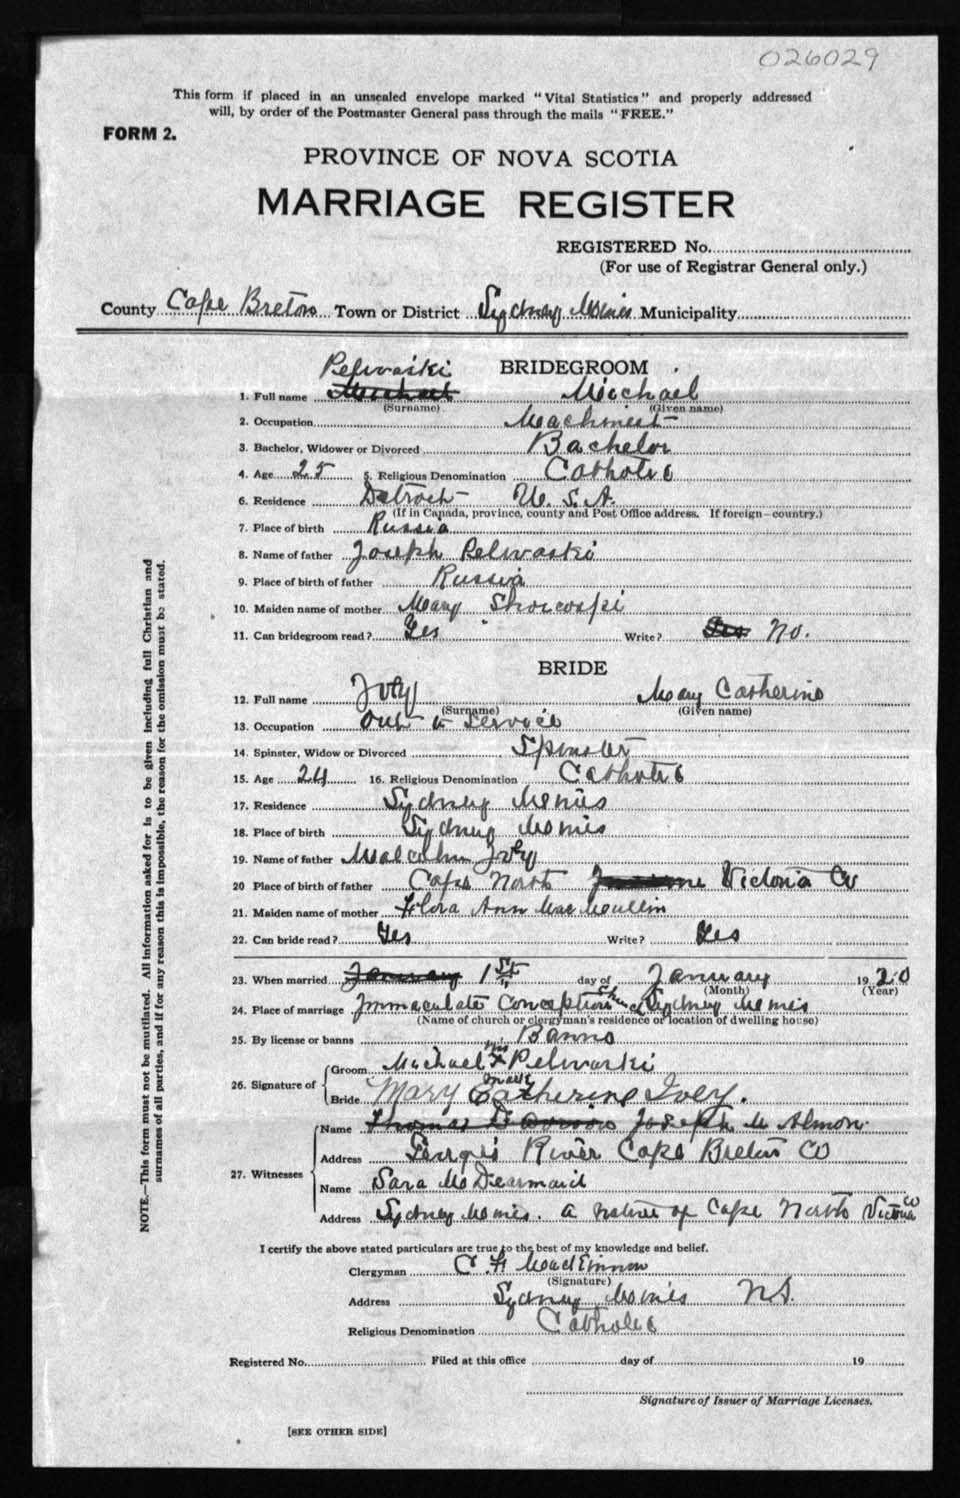 026029
This form if placed in an unsealed envelope marked "Vital Statistics" and properly addressed
will, by order of the Postmaster General pass through the mails "FREE."
FORM 2.
PROVINCE OF NOVA SCOTIA
MARRIAGE REGISTER
REGISTERED No.
(For use of Registrar General only.)
County Cape Breton Town or District Sydney Mines Municipality
BRIDEGROOM
Pelwaski
1. Full name Michael Michael
(Surname) (Given name)
2. Occupation Machinist
3. Bachelor, Widower or Divorced Bachelor
4. Age 25 5. Religious Denomination Catholic
6. Residence Detroit U.S.A.
(If in Canada, province, county and Post Office address. If foreign—country.)
7. Place of birth Russia
8. Name of father Joseph Pelwaski
9. Place of birth of father Russia
10. Maiden name of mother Mary
11. Can bridegroom read? Yes Write? Yes No.
BRIDE
12. Full name Ivey Mary Catherine
(Surname) (Given name)
13. Occupation Out in service
14. Spinster, Widow or Divorced Spinster
15. Age 24 16. Religious Denomination Catholic
17. Residence Sydney Mines
18. Place of birth Sydney Mines
19. Name of father Malcolm Ivey
20 Place of birth of father Cape North Victoria Co
21. Maiden name of mother Flora Ann MacMullin
22. Can bride read? Yes Write? Yes
23. When married January 1st day of January 1920
(Month) (Year)
24. Place of marriage Immaculate Conception Church Sydney Mines
(Name of church or clergyman's residence or location of dwelling house)
25. By license or banns Banns
26. Signature of
Groom Michael his X mark Pelwaski
Bride Mary Catherine Ivey.
27. Witnesses
Name Thomas Joseph M Almon
Address Georges River Cape Breton Co
Name Sara McDearmaid
Address Sydney Mines. a native of Cape North Victoria Co
I certify the above stated particulars are true to the best of my knowledge and belief.
Clergyman C. F. MacKinnon
(Signature)
Address Sydney Mines N.S.
Religious Denomination Catholic
Registered No. Filed at this office day of 19
Signature of Issuer of Marriage Licenses.
[SEE OTHER SIDE]
NOTE.—This form must not be mutilated. All information asked for is to be given including full Christian and
surnames of all parties, and if for any reason this is impossible, the reason for the omission must be stated.